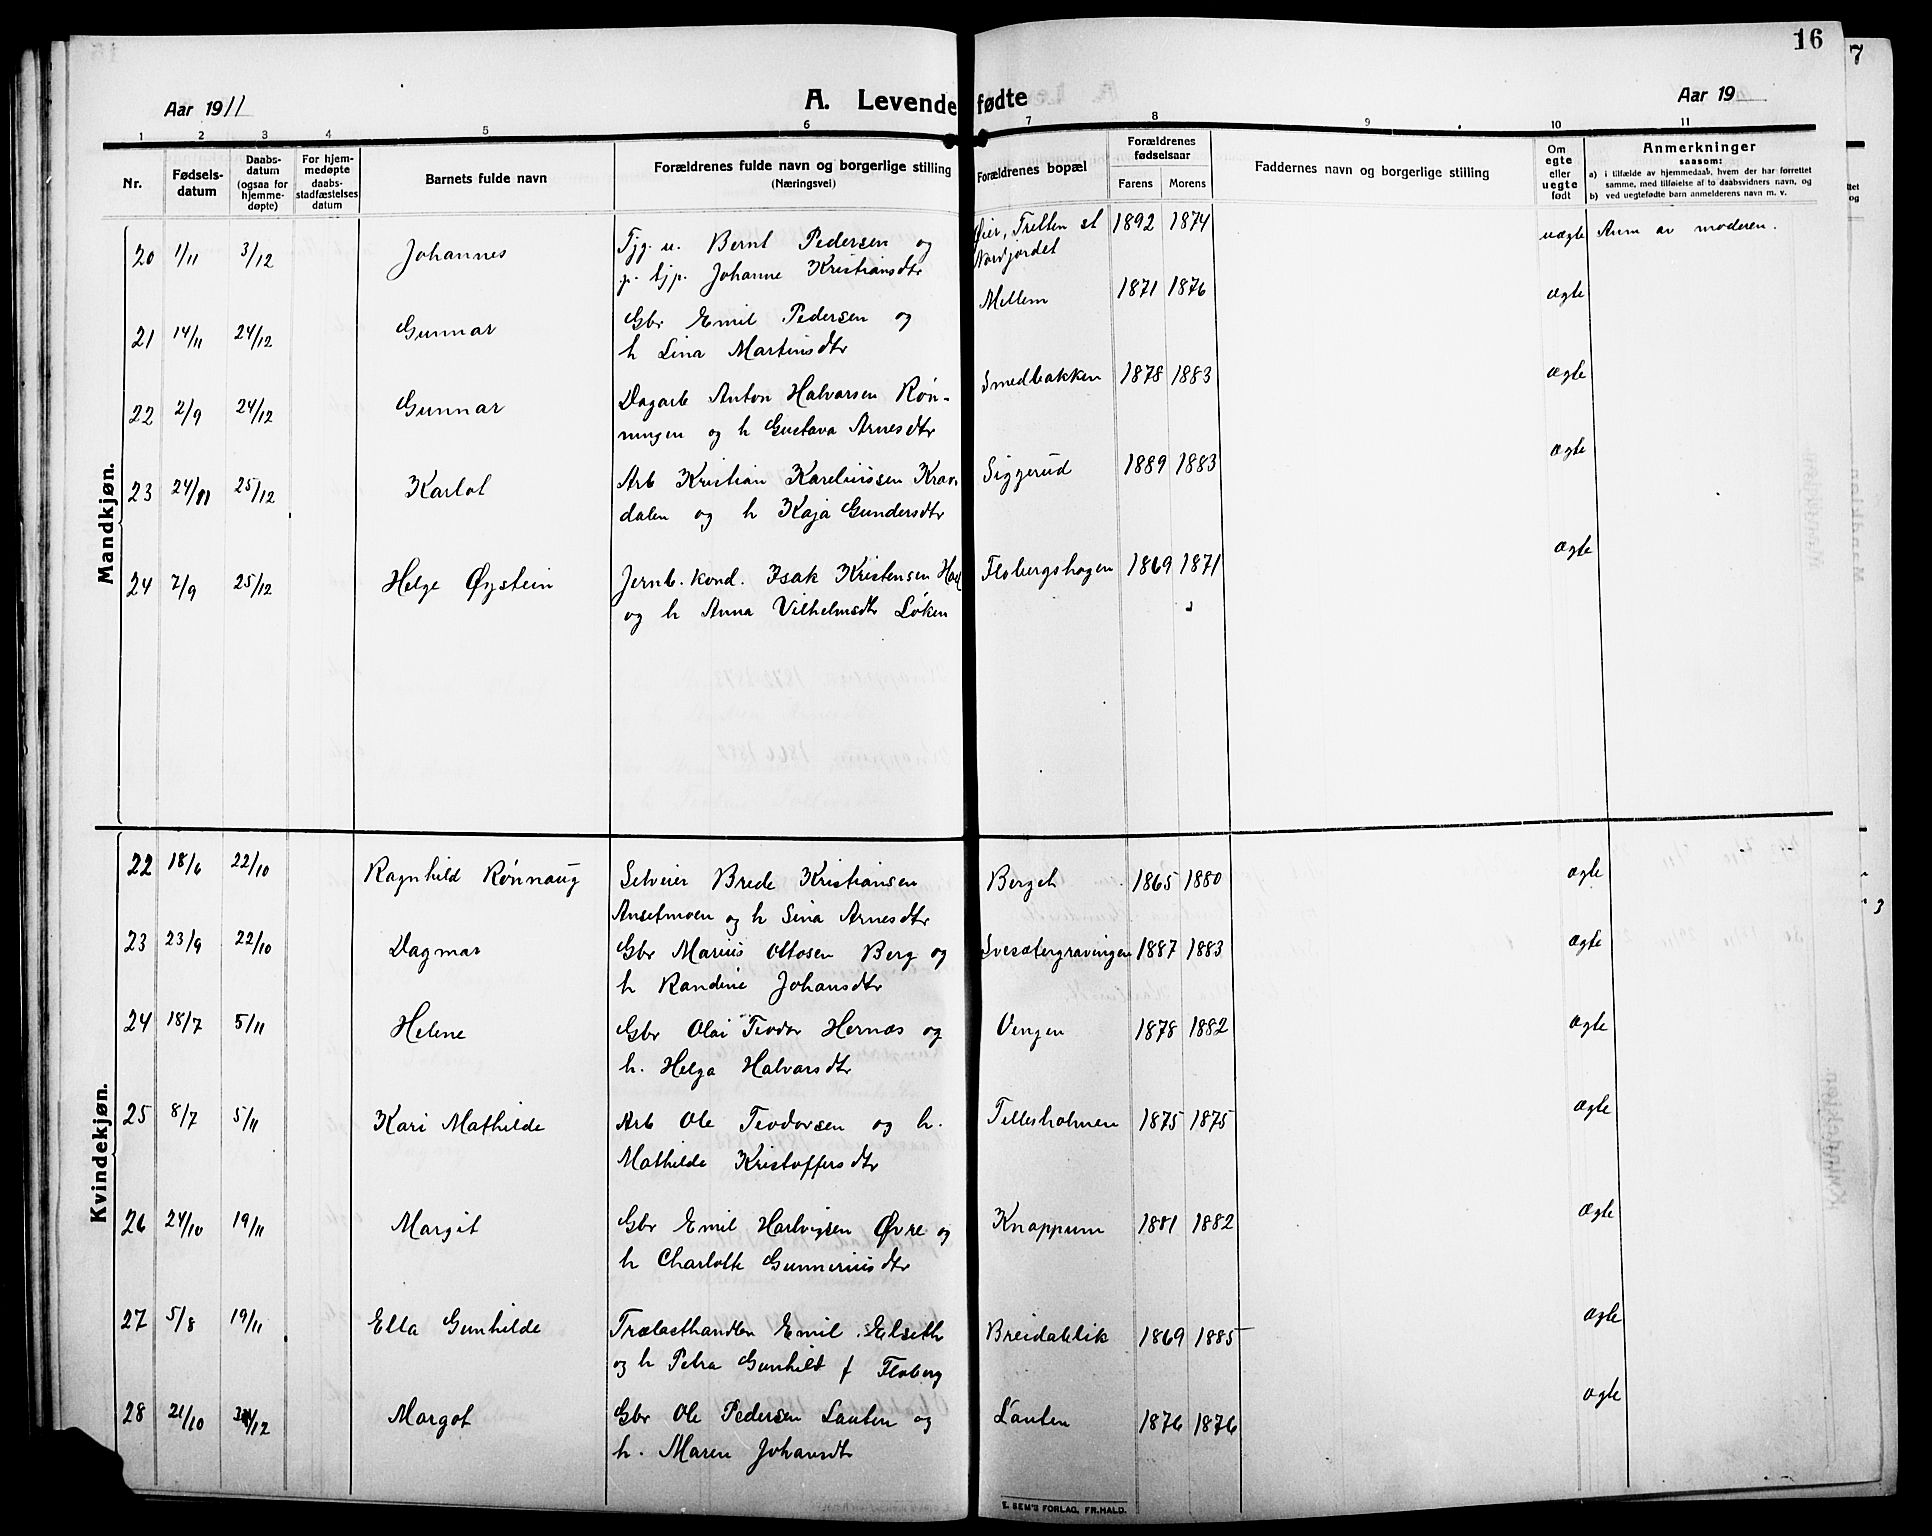 16
7
Aar 1911
A. Levendefødte
Aar 19
1 2 3 4 5 6 7 8 9 10 11
Nr.
Fødsels-
datum
Daabs-
datum
(ogsaa for
hjemme-
døpte)
For hjem-
medøpte
daabs-
stadfæstelses
datum
Barnets fulde navn
Forældrenes fulde navn og borgerlige stilling
(Næringsvei)
Forældrenes bopæl
Forældrenes
fødselsaar
Farens Morens
Faddernes navn og borgerlige stilling
Om
egte
eller
uegte
født
Anmerkninger
saasom:
a) i tilfælde av hjemmedaab, hvem der har forrettet
samme, med tilføielse af to daabsvidners navn, og
b) ved uegtefødte børn anmelderens navn m. v.
Mandkjøn.
20 1/11 3/12 Johannes Tjg. u. Bernt Pedersen og Øier, Tretten st 1892 1874 uægte Anm av moderen.
p. tjp. Johanne Kristiansdtr Norfjordet
21 14/11 24/12 Gunnar Gbr Emil Pedersen og Mellem 1871 1876 ægte
h Lina Martinsdtr
22 2/9 24/12 Gunnar Dagarb Anton Halvorsen Røn- Smedbakken 1878 1883 ægte
ningen og h Gustava Arnesdtr
23 24/11 25/12 Karlot Arb Kristian Kareliussen Krav- Siggerud 1889 1883 ægte
dalen og h Kaja Gundersdtr
24 7/9 25/12 Helge Øystein Jernb. kond. Isak Kristensen Flobergshagen 1869 1871 ægte
og h Anna Vilhelmsdtr Løken
Kvindekjøn.
22 18/6 22/10 Ragnhild Rønnaug Selveier Brede Kristiansen Berget 1865 1880 ægte
Ansetmoen og h Lina Arnesdtr
23 23/9 22/10 Dagmar Gbr Marius Ottosen Berg og Svesætergravingen 1887 1883 ægte
h Randine Johansdtr
24 18/7 5/11 Helene Gbr Olai Teodor Hernæs og Vengen 1878 1882 ægte
h. Helga Halvorsdtr
25 8/7 5/11 Kari Mathilde Arb Ole Teodorsen og h. Tillesholmen 1875 1875 ægte
Mathilde Kristoffersdtr
26 24/10 19/11 Margit Gbr Emil Hartvigsen Øvre og Knappum 1881 1882 ægte
h Charlotte Gunneriusdtr
27 5/8 19/11 Ella Gunhilde Trælasthandler Emil Elseth Breidablik 1869 1885 ægte
og h Petra Gunhild f Floberg
28 21/10 Margot Gbr Ole Pedersen Lauten og Lauten 1876 1876 ægte
h. Maren Johansdtr
E. SEM'S FORLAG, FR.HALD.